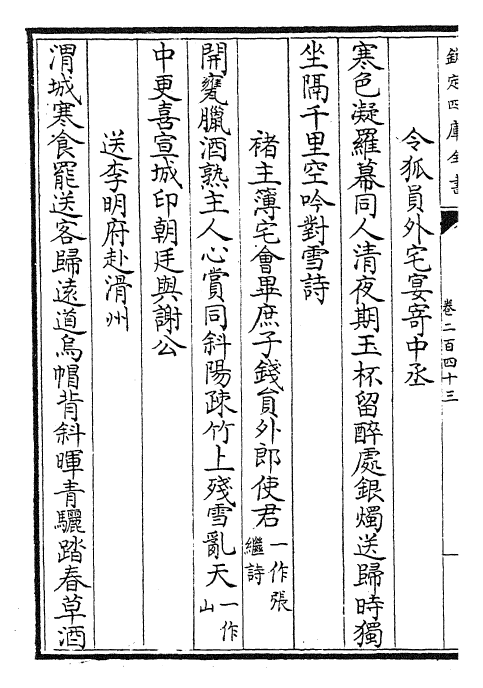 欽定四庫全書
卷二百四十三
令狐員外宅宴寄中丞
寒色凝羅幕同人清夜期玉杯留醉處銀燭送歸時獨
坐隔千里空吟對雪詩
褚主簿宅會畢庶子錢員外郎使君一作張繼詩
開甕臘酒熟主人心賞同斜陽疎竹上殘雪亂天一作山
中更喜宣城印朝廷與謝公
送李明府赴滑州
渭城寒食罷送客歸遠道烏帽背斜暉青驪踏春草酒